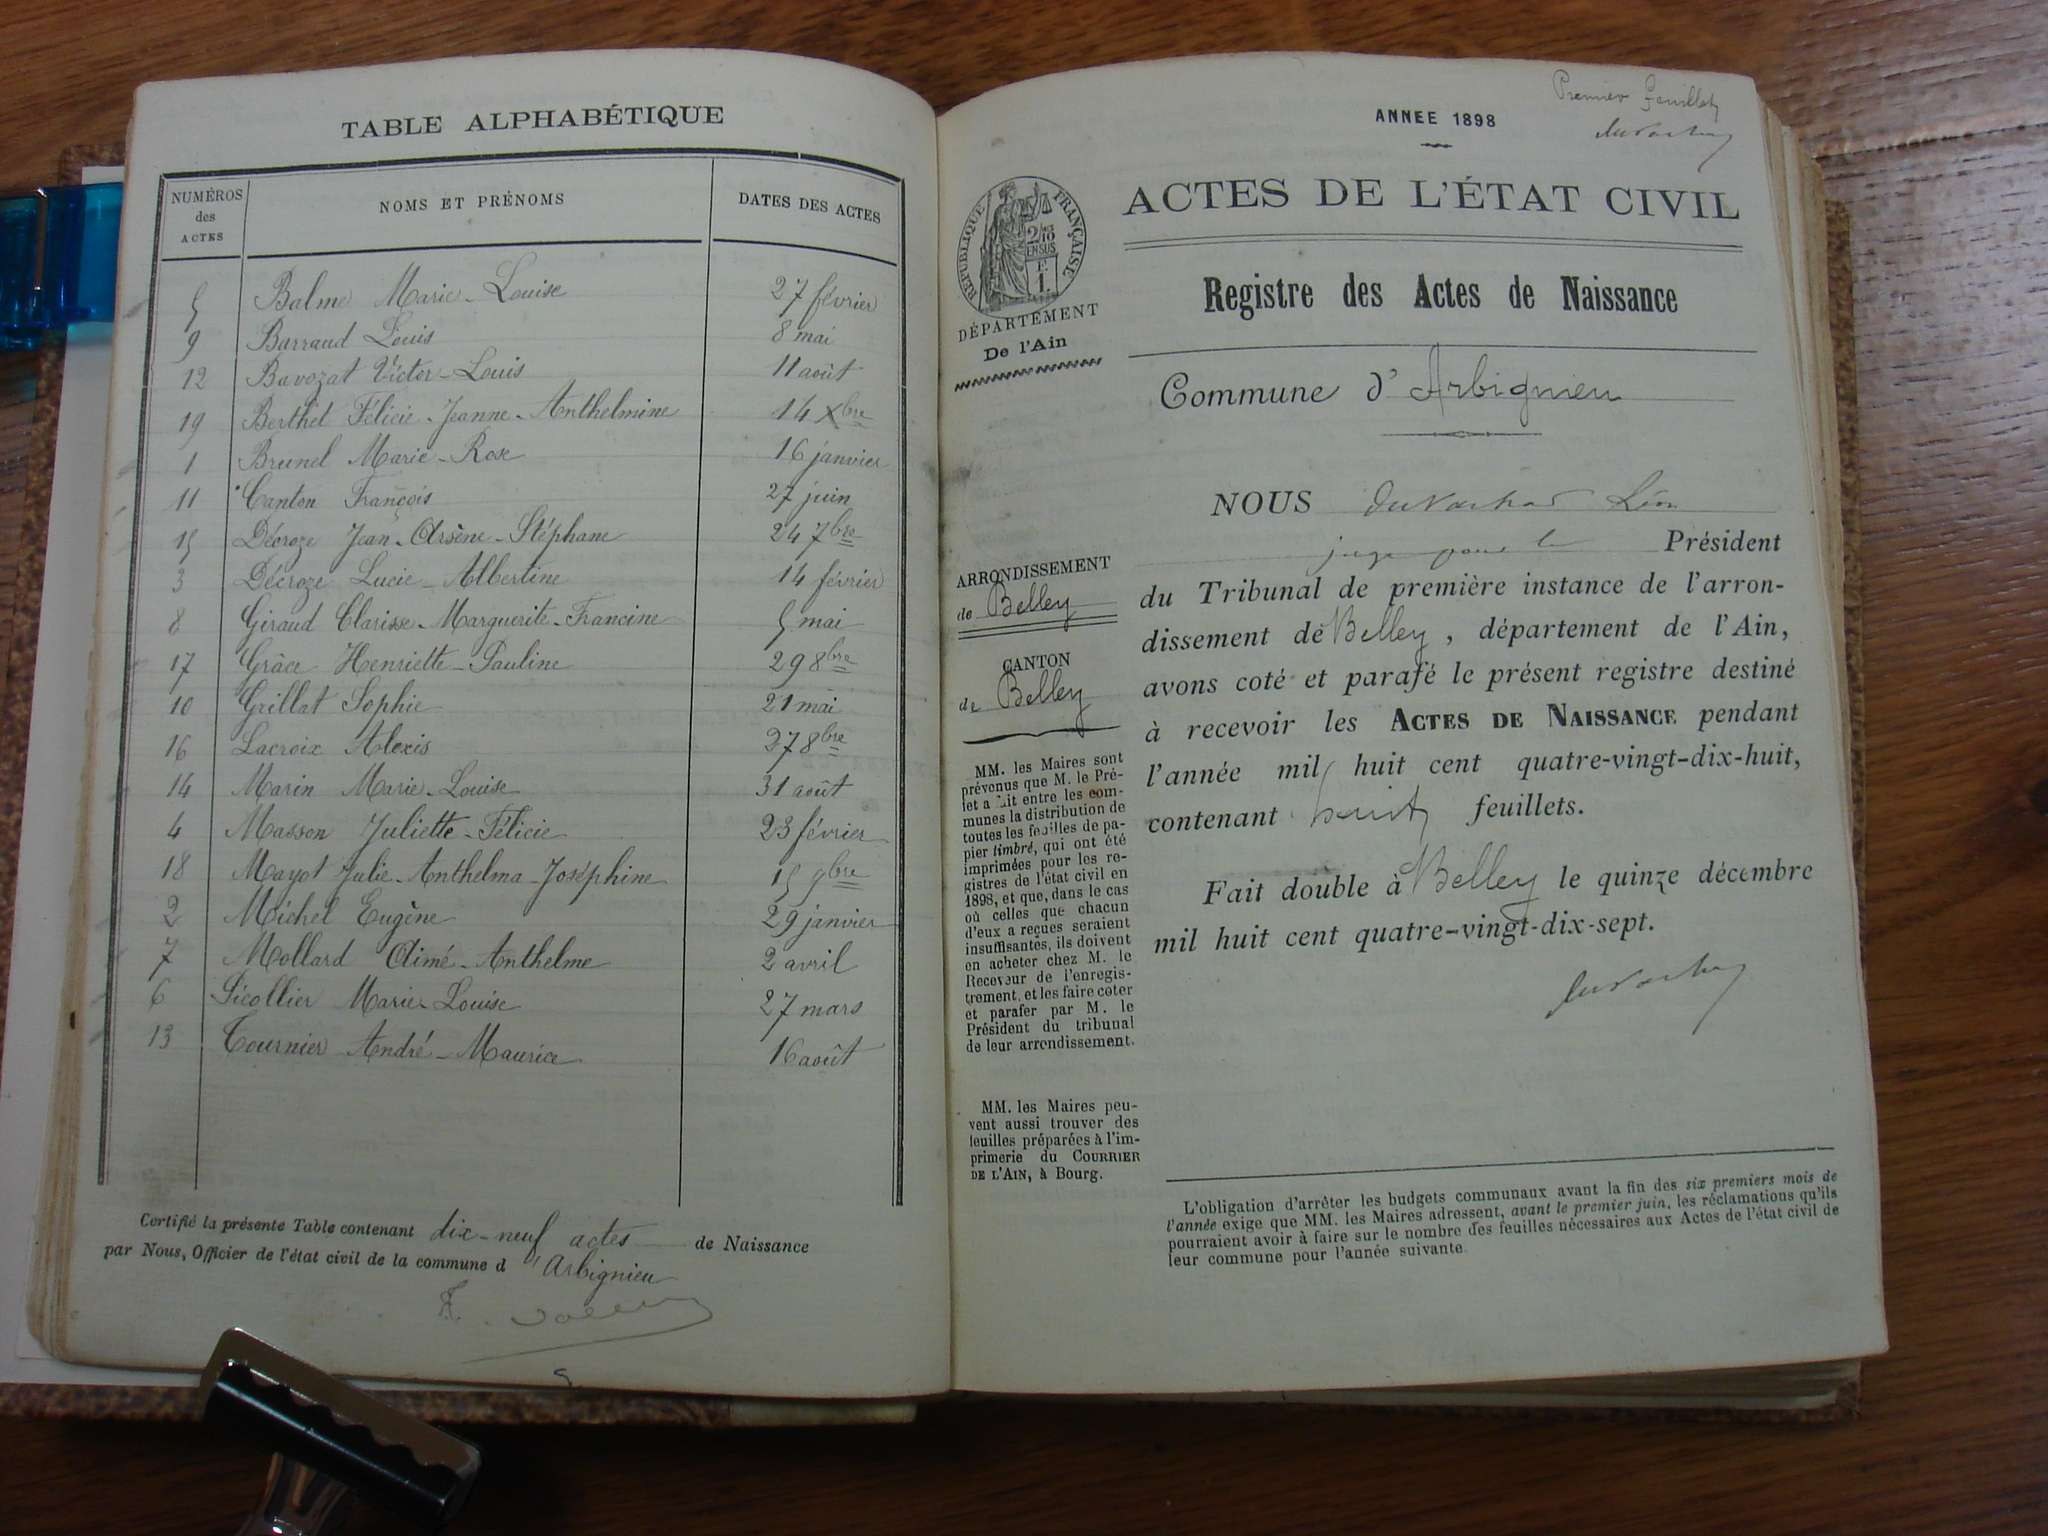 TABLE ALPHABÉTIQUE
NUMÉROS des ACTES NOMS ET PRÉNOMS DATES DES ACTES
5 Balme Marie-Louise 27 février
9 Barraud Louis 8 mai
12 Bavozat Victor-Louis 11 août
19 Berthet Félicie-Jeanne-Anthelmine 14 Xbre
1 Brunel Marie-Rose 16 janvier
11 Canton François 27 juin
15 Décroze Jean-Arsène-Stéphane 24 7bre
3 Décroze Lucie-Albertine 14 février
8 Giraud Clarisse-Marguerite-Francine 5 mai
17 Grâce Henriette-Pauline 29 8bre
10 Grillat Sophie 21 mai
16 Lacroix Alexis 27 8bre
14 Marin Marie-Louise 31 août
4 Masson Juliette-Félicie 23 février
18 Mayot Julie-Anthelma-Joséphine 15 9bre
2 Michel Eugène 29 janvier
7 Mollard Aimé-Anthelme 2 avril
6 Sicollier Marie-Louise 27 mars
13 Tournier André-Maurice 16 août
Certifié la présente Table contenant dix-neuf actes de Naissance
par Nous, Officier de l'état civil de la commune d'Arbignieu
Premier feuillet
ANNEE 1898
ACTES DE L'ÉTAT CIVIL
RÉPUBLIQUE FRANÇAISE
2/10
EN SUS
1
DÉPARTEMENT
De l'Ain
Registre des Actes de Naissance
Commune d'Arbignieu
ARRONDISSEMENT
de Belley
CANTON
de Belley
MM. les Maires sont
prévenus que M. le Pré-
fet a fait entre les com-
munes la distribution de
toutes les feuilles de pa-
pier timbré, qui ont été
imprimées pour les re-
gistres de l'état civil en
1898, et que, dans le cas
où celles que chacun
d'eux a reçues seraient
insuffisantes, ils doivent
en acheter chez M. le
Receveur de l'enregis-
trement, et les faire coter
et parafer par M. le
Président du tribunal
de leur arrondissement.
MM. les Maires peu-
vent aussi trouver des
feuilles préparées à l'im-
primerie du COURRIER
DE L'AIN, à Bourg.
NOUS Léon
juge pour le Président
du Tribunal de première instance de l'arron-
dissement de Belley, département de l'Ain,
avons coté et parafé le présent registre destiné
à recevoir les ACTES DE NAISSANCE pendant
l'année mil huit cent quatre-vingt-dix-huit,
contenant huit feuillets.
Fait double à Belley le quinze décembre
mil huit cent quatre-vingt-dix-sept.
L'obligation d'arrêter les budgets communaux avant la fin des six premiers mois de
l'année exige que MM. les Maires adressent, avant le premier juin, les réclamations qu'ils
pourraient avoir à faire sur le nombre des feuilles nécessaires aux Actes de l'état civil de
leur commune pour l'année suivante.